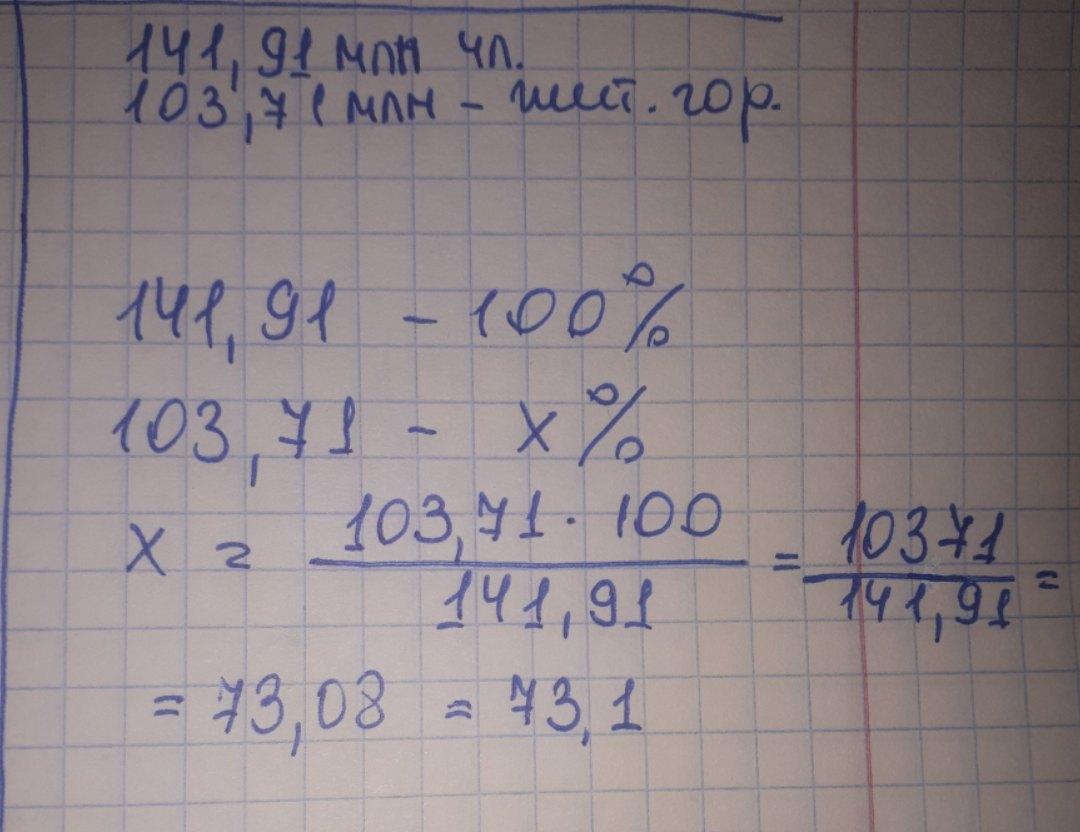 141,91 млн чл.
103,71 млн - жит. гор.
141,91 - 100%
103,71 - x%
x = 103,71 · 100 / 141,91 = 10371 / 141,91 =
= 73,08 = 73,1